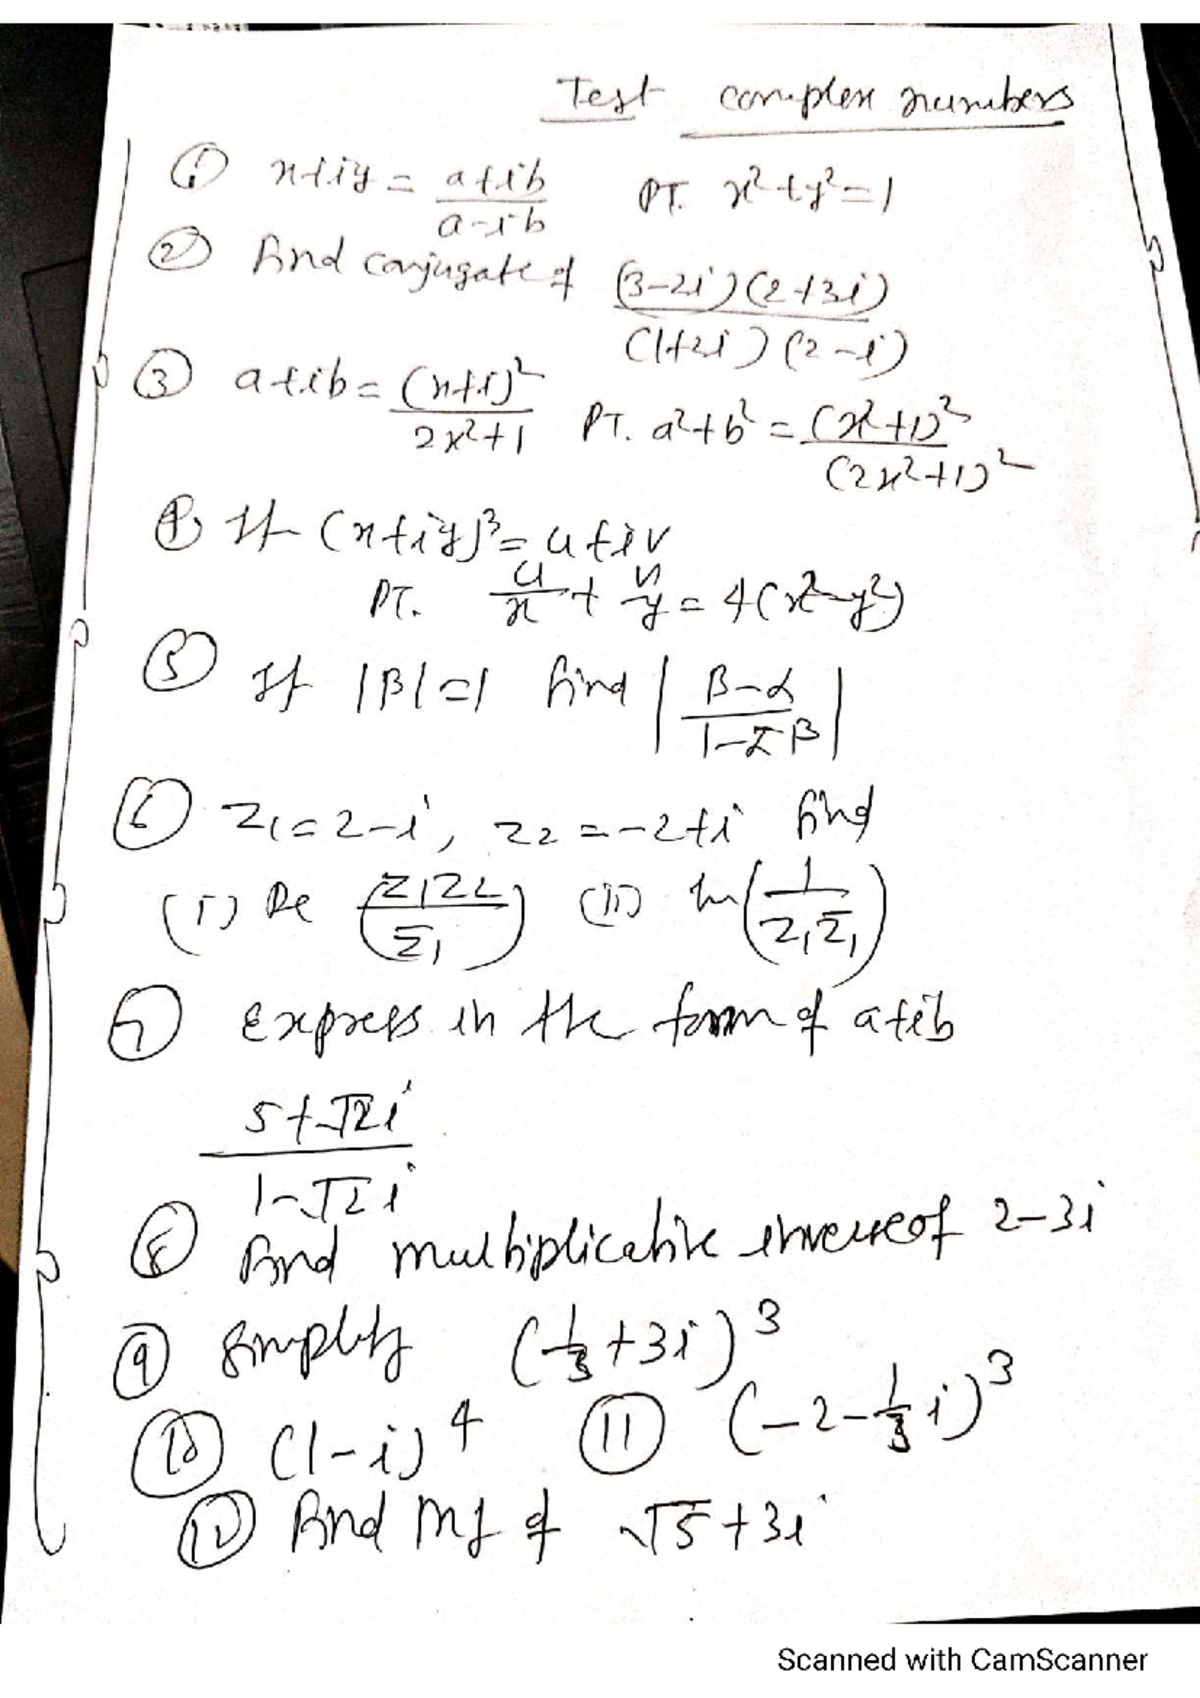 Test complex numbers
① x+iy = (a+ib)/(a-ib) PT. x²+y²=1
② Find conjugate of ((3-2i)(2+3i))/((1+2i)(2-i))
③ a+ib = (x+i)²/(2x²+1) PT. a²+b² = (x²+1)²/(2x²+1)²
④ If (x+iy)³ = u+iv
PT. u/x + v/y = 4(x²-y²)
⑤ If |β|=1 find |(β-α)/(1-ᾱβ)|
⑥ z₁=2-i, z₂=-2+i find
(i) Re (z₁z₂/z̄₁) (ii) Im(1/(z₁z̄₁))
⑦ Express in the form of a+ib
(5+√2i)/(1-√2i)
⑧ Find multiplicative inverse of 2-3i
⑨ Simplify (1/3+3i)³
⑩ (1-i)⁴ ⑪ (-2-1/3i)³
⑫ Find MI of √5+3i
Scanned with CamScanner